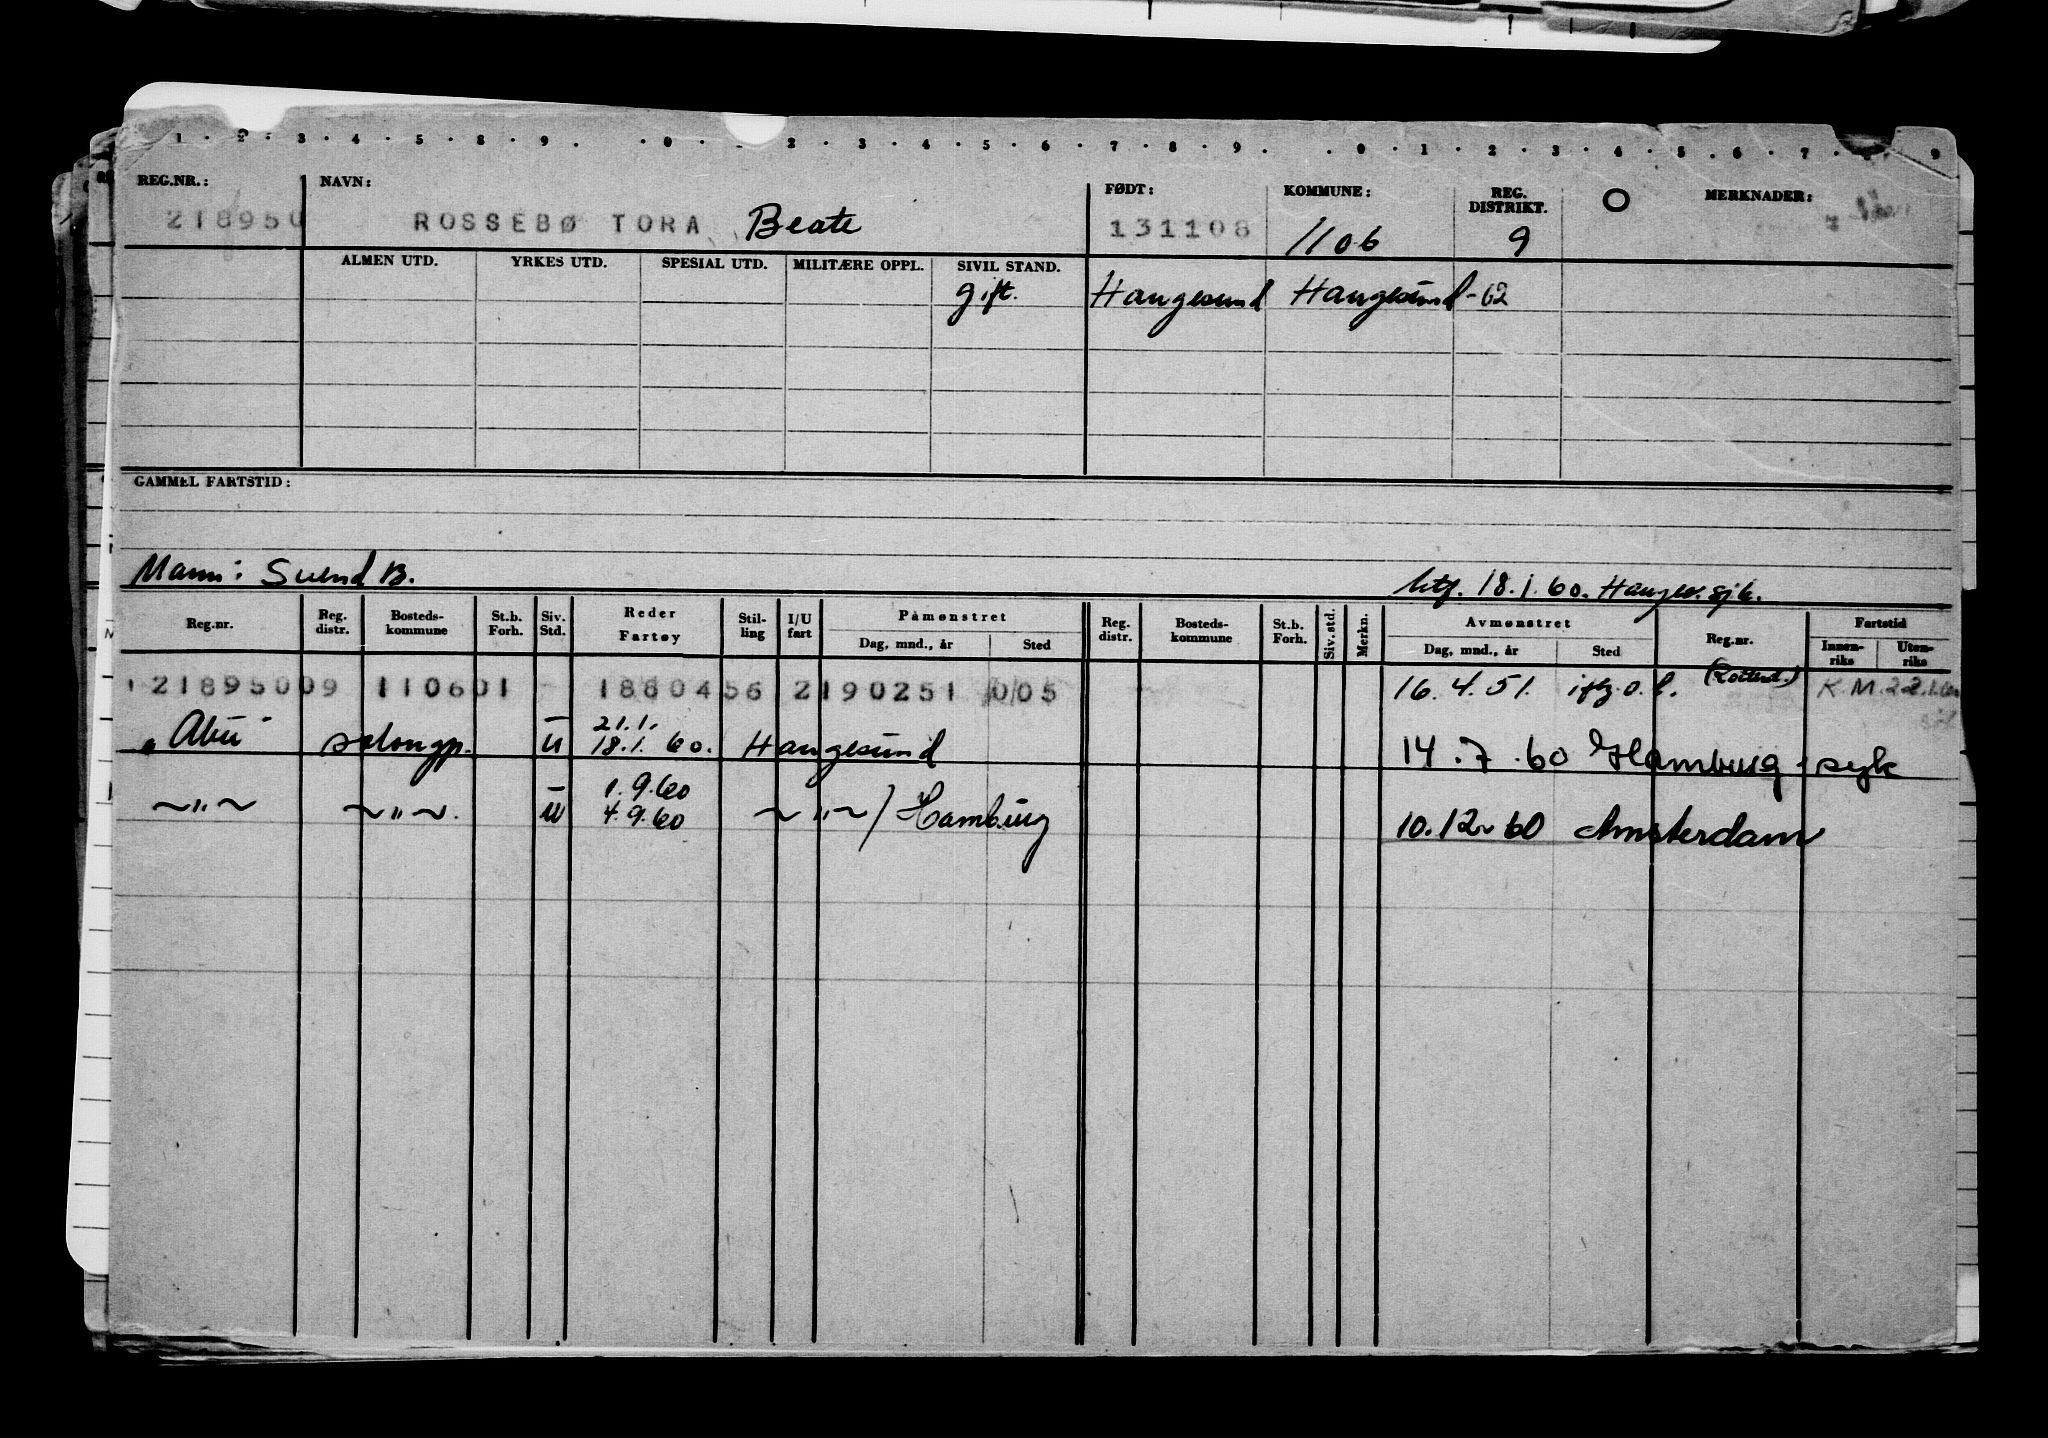 1 . 2 . 3 . 4 . 5 . 8 . 9 . . 0 . . 2 . 3 . 4 . 5 . 6 . 7 . 8 . 9 . . 0 . 1 . 2 . 3 . 4 . 5 . 6 . 7 . 9
REG.NR.: NAVN: FØDT: KOMMUNE: REG. DISTRIKT. O MERKNADER:
218950 ROSSEBØ TORA Beate 131108 1106 9
ALMEN UTD. YRKES UTD. SPESIAL UTD. MILITÆRE OPPL. SIVIL STAND.
gift. Haugesund Haugesund -62
GAMMEL FARTSTID:
Mann: Svend B. 18.1.60. Hauges. sjk.
Reg.nr. Reg. distr. Bosteds-kommune St.b. Forh. Siv. Std. Reder Fartøy Stil-ling I/U fart Påmønstret Dag, mnd., år Sted Reg. distr. Bosteds-kommune St.b. Forh. Siv.std. Merkn. Avmønstret Dag, mnd., år Sted Reg.nr. Fartstid Innen-riks Uten-riks
121895009 110601 - 1880456 2190251 005 16.4.51. iflg. o.l. (Rotterd.) K.M. 22.1.60
21.1.
"Abu" salongp. U 18.1.60. Haugesund 14.7.60 Hamburg - syk
1.9.60
~"~ ~"~. U 4.9.60 ~"~ / Hamburg 10.12-60 Amsterdam